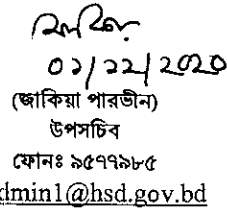 ০১/১২/২০২০
(জাকিয়া পারভীন)
উপসচিব
ফোনঃ ৯৫৭৭৯৮৫
dmin1@hsd.gov.bd